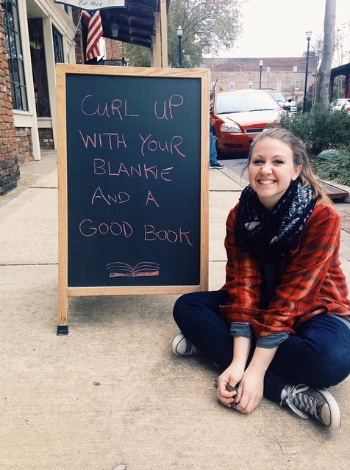 CURL UP
WITH YOUR
BLANKIE
AND A
GOOD BOOK